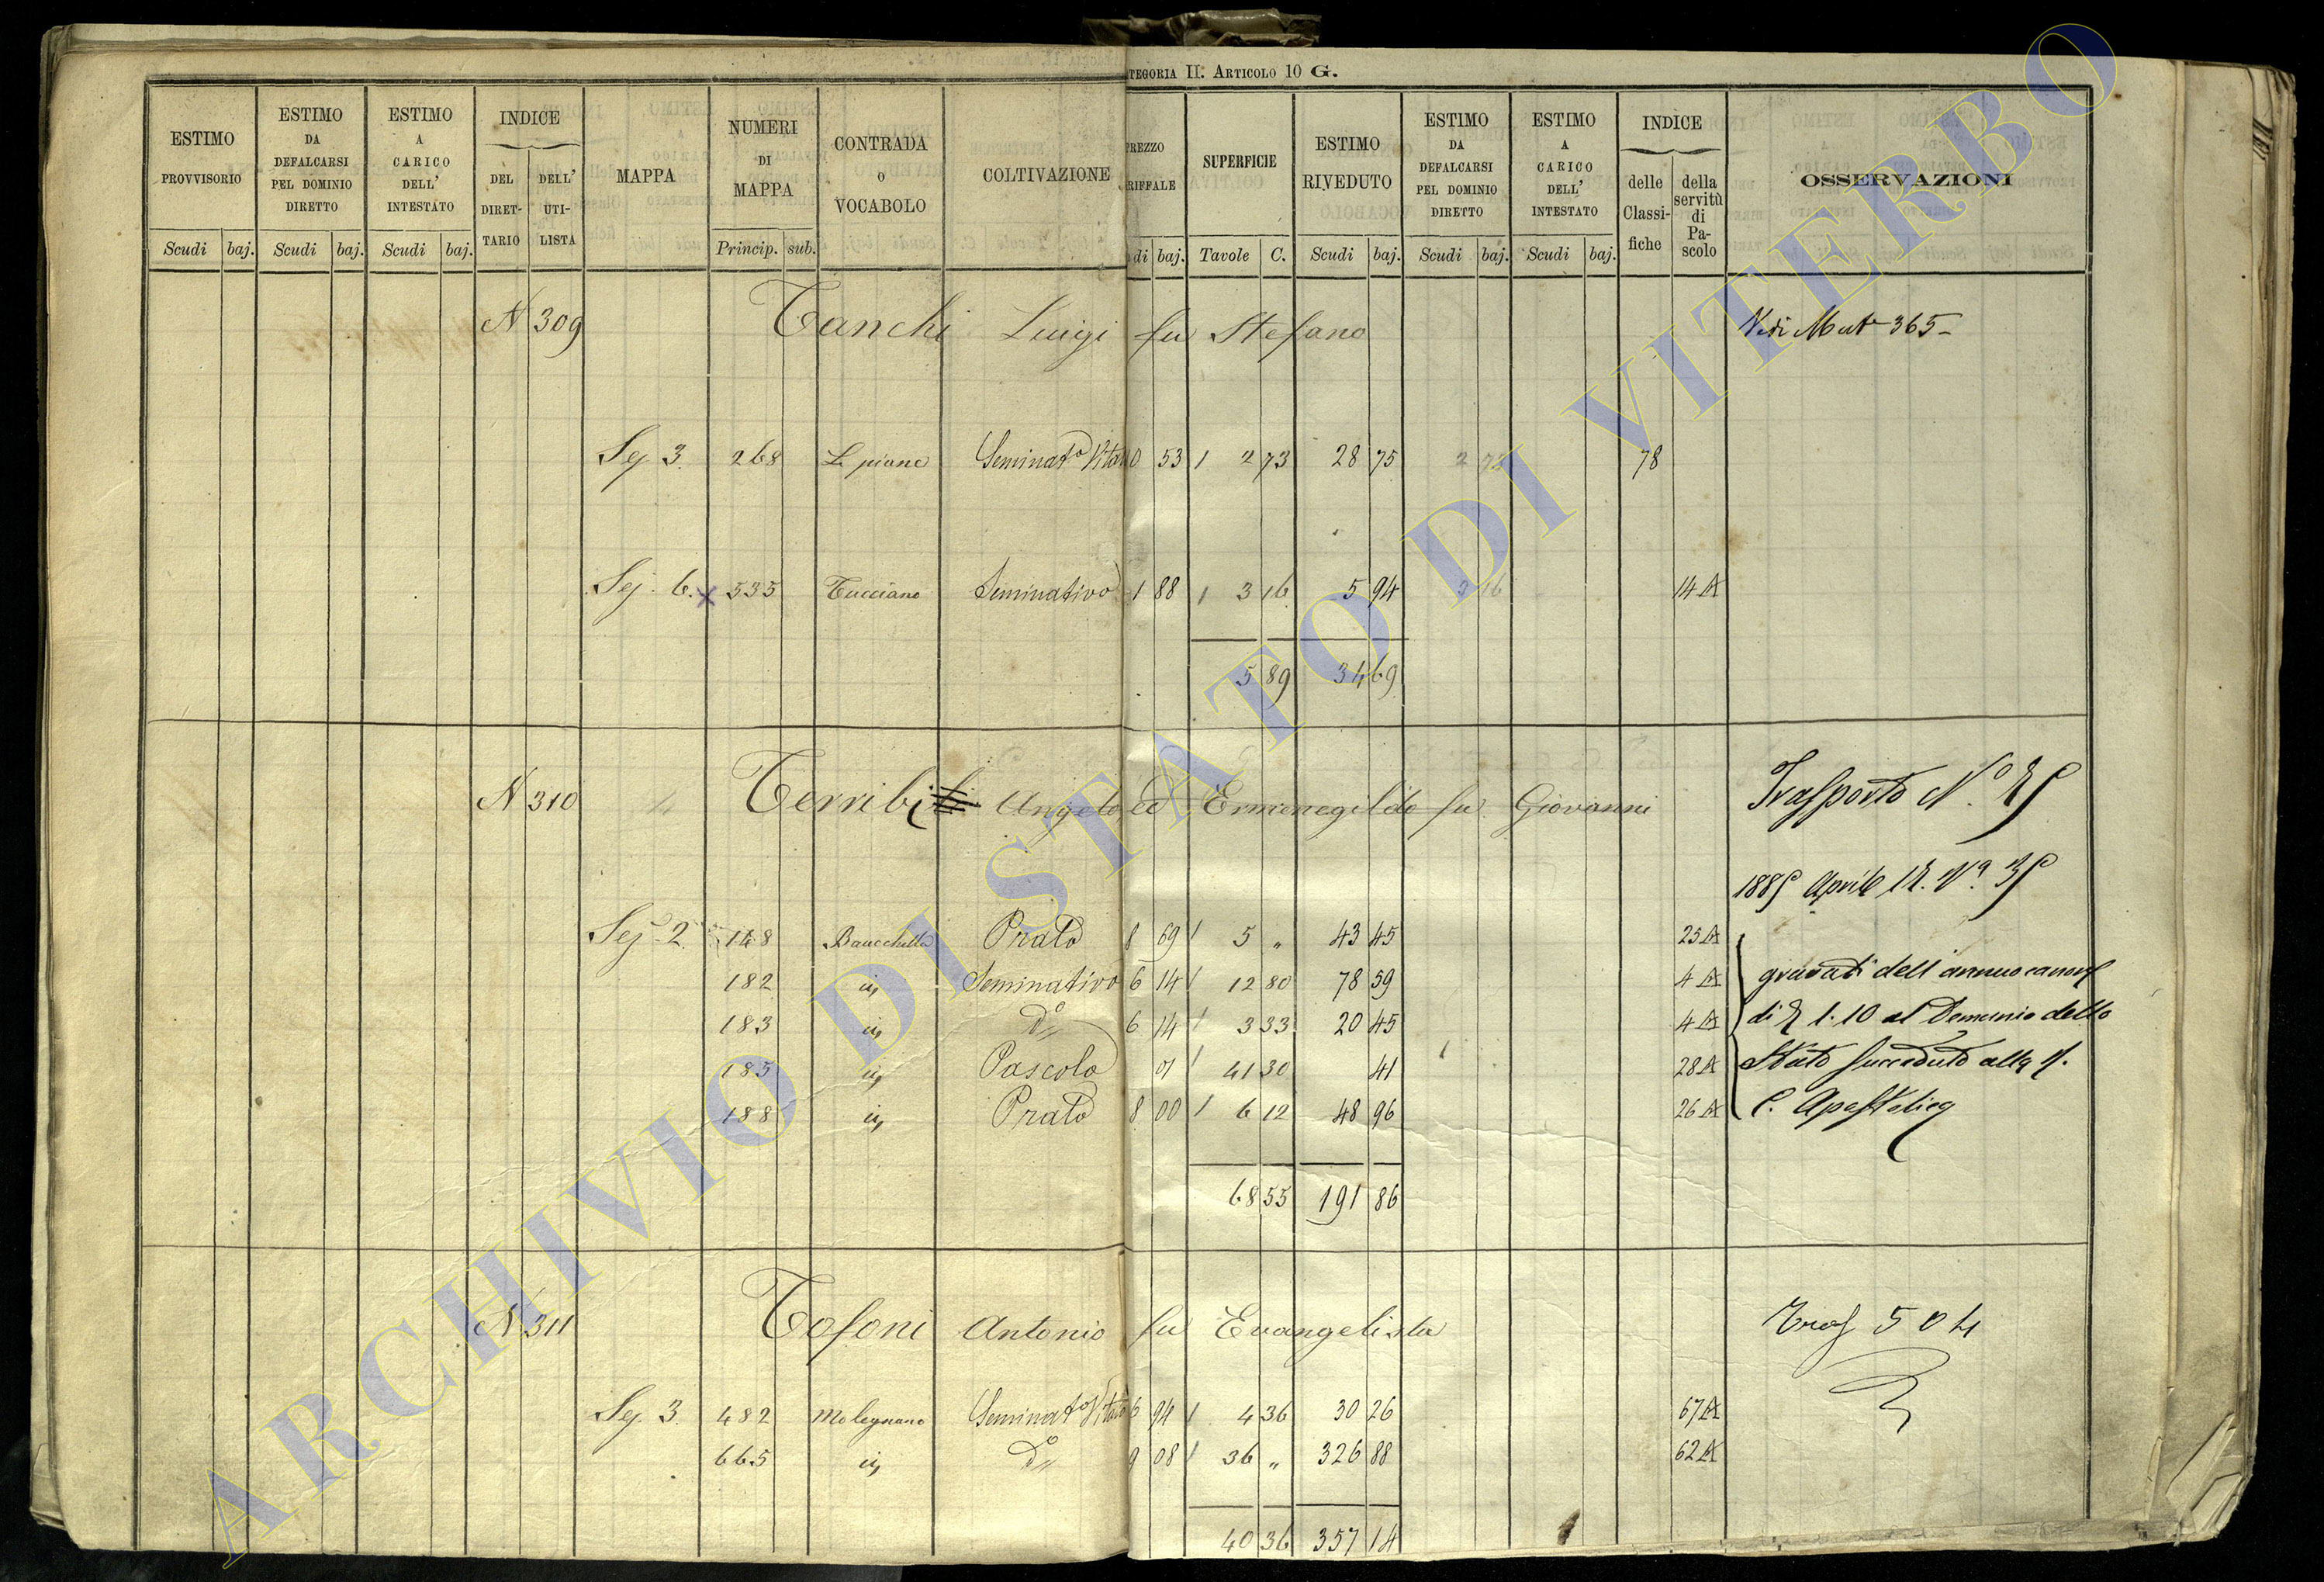 TEGORIA II. ARTICOLO 10 G.
ESTIMO PROVVISORIO Scudi baj.
ESTIMO DA DEFALCARSI PEL DOMINIO DIRETTO Scudi baj.
ESTIMO A CARICO DELL' INTESTATO Scudi baj.
INDICE DEL DIRET-TARIO DELL' UTI-LISTA
MAPPA
NUMERI DI MAPPA Princip. sub.
CONTRADA O VOCABOLO
COLTIVAZIONE
REZZO RIFFALE di baj.
SUPERFICIE Tavole C.
ESTIMO RIVEDUTO Scudi baj.
ESTIMO DA DEFALCARSI PEL DOMINIO DIRETTO Scudi baj.
ESTIMO A CARICO DELL' INTESTATO Scudi baj.
INDICE delle Classi-fiche della servitù di Pa-scolo
OSSERVAZIONI
N 309 Tanchi Luigi fu Stefano Vedi Mut 365
Sez 3. 268 Le piane Seminato Vitato 0 53 1 2 73 28 75 2 73 78
Sez. 6. x 535 Tucciano Seminativo 1 88 1 3 16 5 94 3 16 14 A
5 89 34 69
N 310 Terribili Angelo ed Ermenegildo fu Giovanni Trasporto N.º 25
1885 Aprile 12. N.º 35
Sez. 2. 148 Baucchella Prato 8 69 1 5 " 43 45 25 A
182 id Seminativo 6 14 1 12 80 78 59 4 A gravati dell'annuo canone
183 id Dº 6 14 1 3 33 20 45 4 A di £ 1.10 al Demanio dello
185 id Pascolo 01 1 41 30 41 28 A Stato succeduto alla R.
188 id Prato 8 00 1 6 12 48 96 26 A C. Apostolica
68 55 191 86
N 311 Tofoni Antonio fu Evangelista Tras 504
Sez 3. 482 Molegnano Seminato Vitato 6 94 1 4 36 30 26 67 A
665 id Dº 9 08 1 36 " 326 88 62 A
40 36 357 14
ARCHIVIO DI STATO DI VITERBO